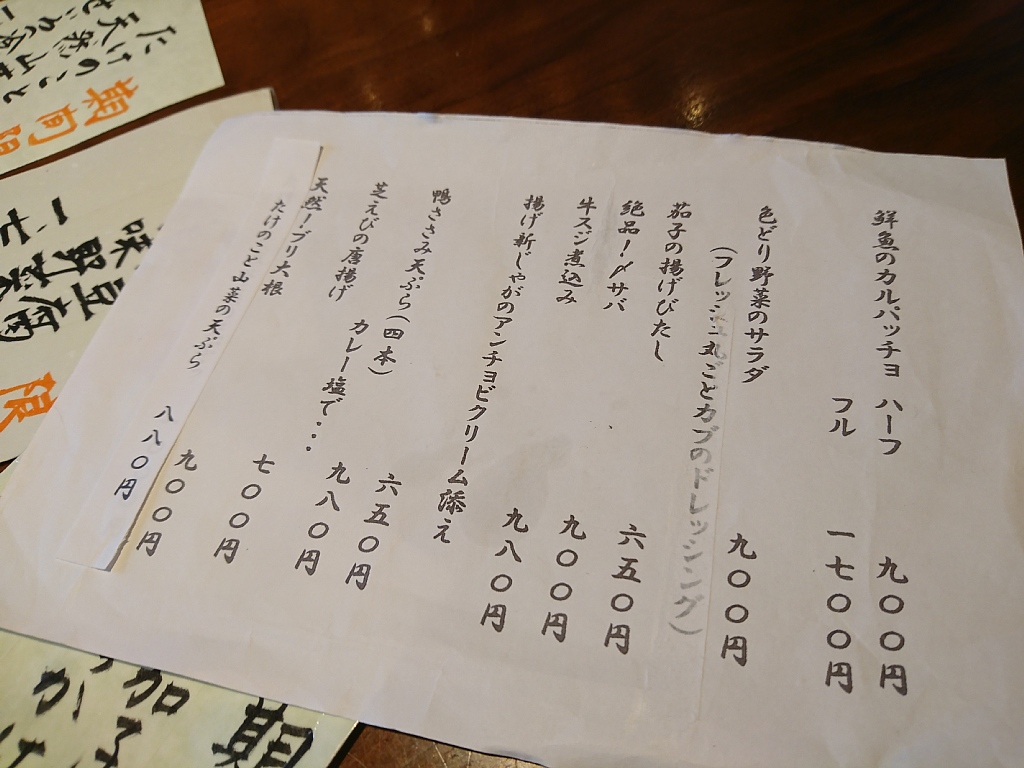 鮮魚のカルパッチョ　ハーフ　九〇〇円
フル　一七〇〇円
色どり野菜のサラダ　九〇〇円
（フレッシュ丸ごとカブのドレッシング）
茄子の揚げびたし　六五〇円
絶品！〆サバ　九〇〇円
牛スジ煮込み　九八〇円
揚げ新じゃがのアンチョビクリーム添え　六五〇円
鴨ささみ天ぷら（四本）　九八〇円
芝えびの唐揚げ　カレー塩で・・・　七〇〇円
天然！ブリ大根　九〇〇円
たけのこと山菜の天ぷら　八八〇円
期間限
たけのこと
天然山
限
豆腐
味野菜
一七
期
加